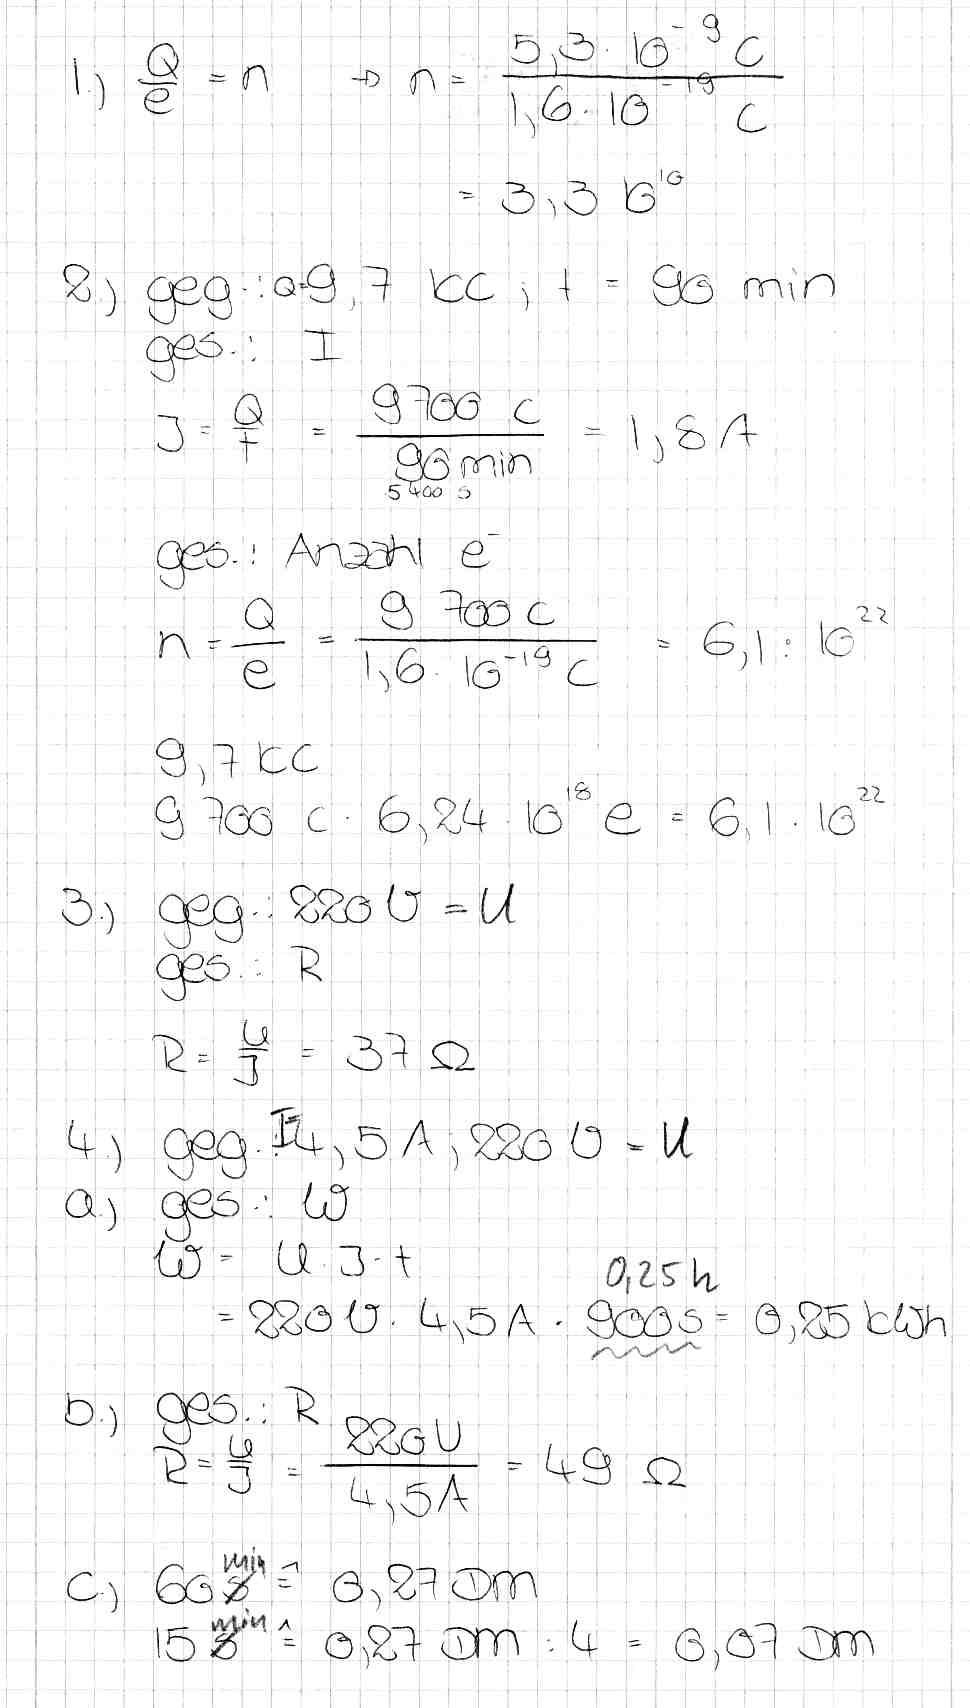 1.) Q/e = n → n = 5,3 · 10⁻⁹ C / 1,6 · 10⁻¹⁹ C
= 3,3 10¹⁰
2.) geg.: Q=9,7 kC ; t = 90 min
ges.: I
I = Q/t = 9700 C / 90 min = 1,8 A
5400 s
ges.: Anzahl e⁻
n = Q/e = 9 700 C / 1,6 · 10⁻¹⁹ C = 6,1 · 10²²
9,7 kC
9 700 C · 6,24 · 10¹⁸ e = 6,1 · 10²²
3.) geg.: 220 V = U
ges.: R
R = U/I = 37 Ω
4.) geg.: I=4,5 A ; 220 V = U
a.) ges.: W
W = U · I · t
0,25 h
= 220 V · 4,5 A · 900 s = 0,25 kWh
b.) ges.: R
R = U/I = 220 V / 4,5 A = 49 Ω
c.) 60 min ≙ 0,27 DM
15 min ≙ 0,27 DM : 4 = 0,07 DM